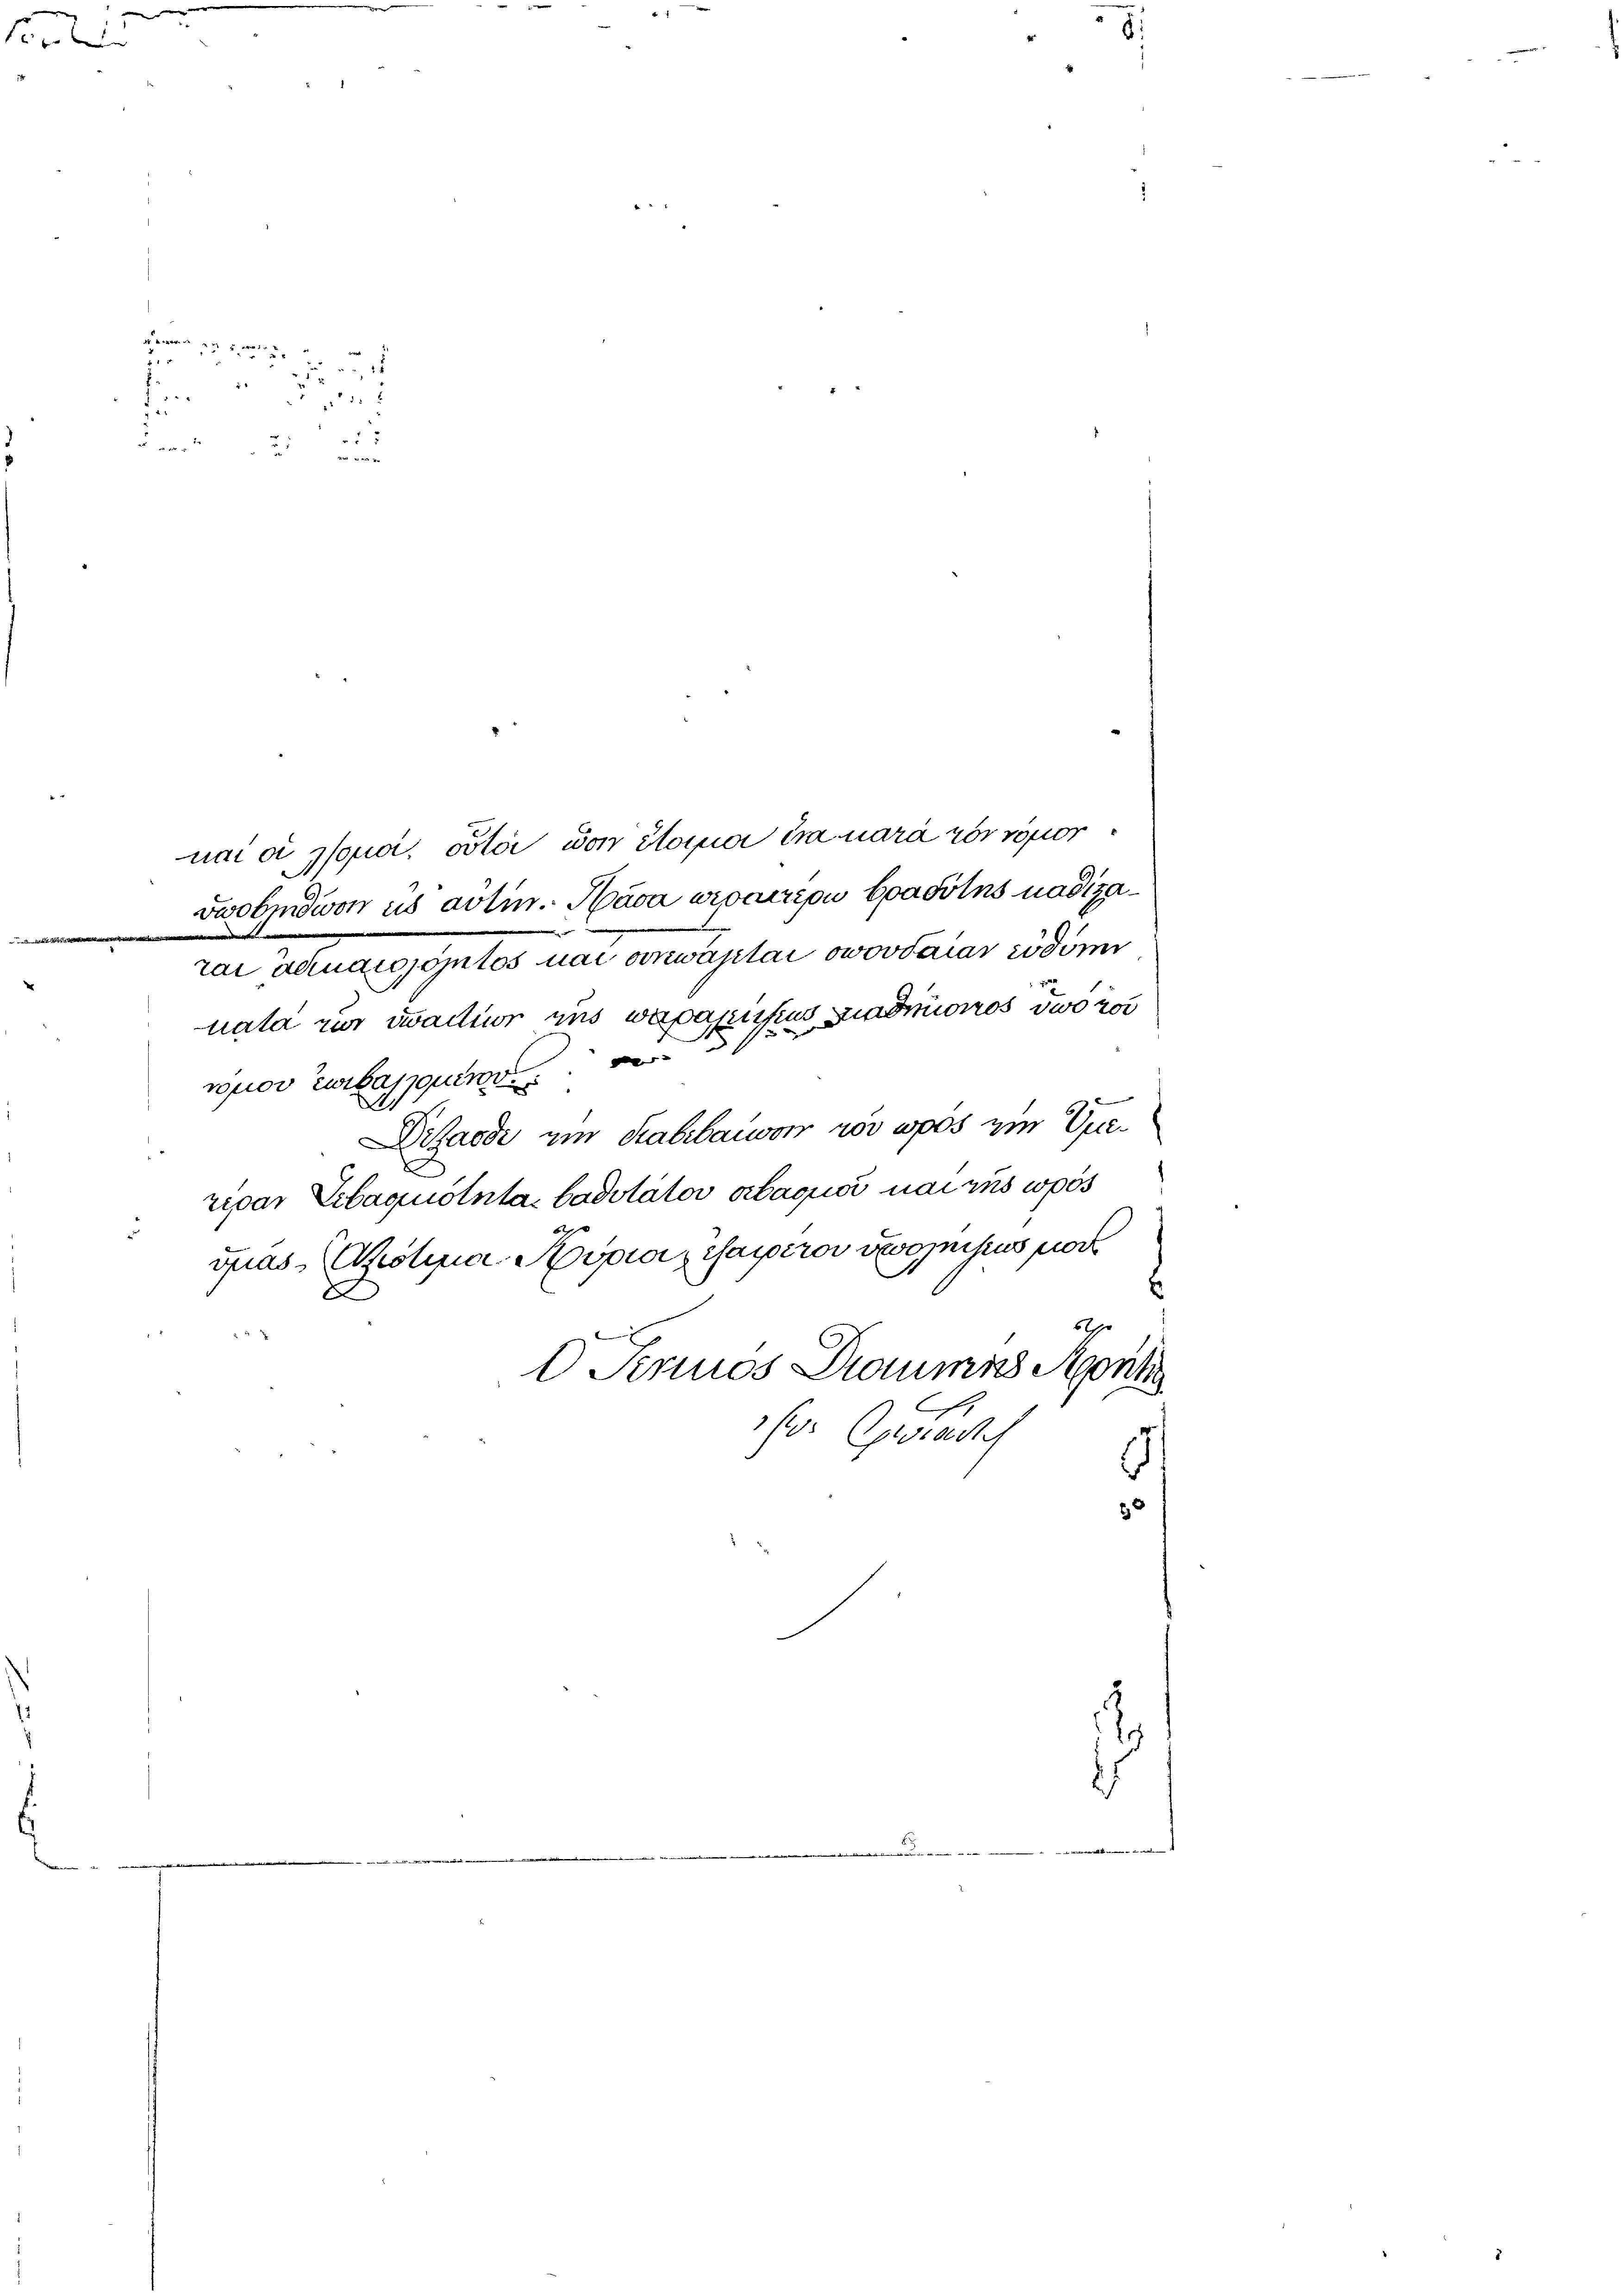 καὶ οἱ γράφοι, οὗτοι εἶναι ἕτοιμοι ἵνα κατὰ τὸν νόμον
ὑποβληθῶσιν εἰς αὐτήν. Πᾶσα περαιτέρω βραδύτης καθίστα-
ται ἀδικαιολόγητος καὶ συνεπάγεται σπουδαίαν εὐθύνην
κατὰ τῶν ὑπαιτίων τῆς παραμελήσεως καθήκοντος ὑπὸ τοῦ
νόμου ἐπιβαλλομένου.
Δέξασθε τὴν διαβεβαίωσιν τοῦ πρὸς τὴν Ὑμε-
τέραν Σεβασμιότητα βαθυτάτου σεβασμοῦ καὶ τῆς πρὸς
ὑμᾶς, Ἀξιότιμοι Κύριοι, ἐξαιρέτου ὑπολήψεώς μου
Ὁ Γενικὸς Διοικητὴς Κρήτης